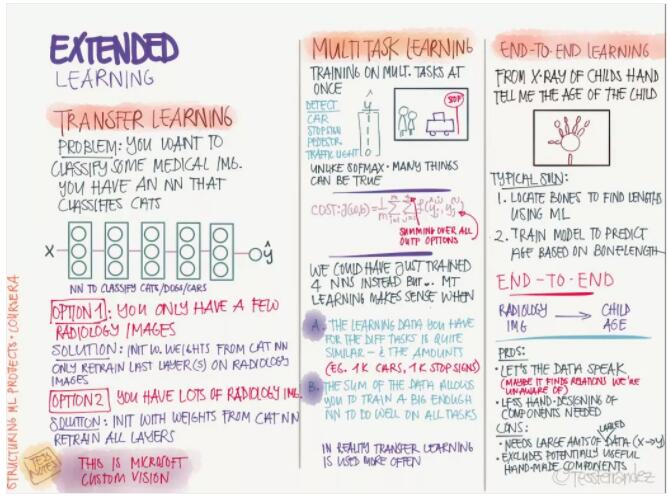 EXTENDED
LEARNING
TRANSFER LEARNING
PROBLEM: YOU WANT TO
CLASSIFY SOME MEDICAL IMG.
YOU HAVE AN NN THAT
CLASSIFIES CATS
X
ŷ
NN TO CLASSIFY CATS/DOGS/CARS
OPTION 1: YOU ONLY HAVE A FEW
RADIOLOGY IMAGES
SOLUTION: INIT W. WEIGHTS FROM CAT NN
ONLY RETRAIN LAST LAYER(S) ON RADIOLOGY
IMAGES
OPTION 2 YOU HAVE LOTS OF RADIOLOGY IMG.
SOLUTION: INIT WITH WEIGHTS FROM CAT NN
RETRAIN ALL LAYERS
THIS IS MICROSOFT
CUSTOM VISION
TESS
NOTES
STRUCTURING ML PROJECTS · COURSERA
MULTI TASK LEARNING
TRAINING ON MULT. TASKS AT
ONCE
DETECT
CAR
STOP SIGN
PEDESTR.
TRAFFIC LIGHT
ŷ
1
0
STOP
UNLIKE SOFMAX · MANY THINGS
CAN BE TRUE
SUMMING OVER ALL
OUTP OPTIONS
WE COULD HAVE JUST TRAINED
4 NNS INSTEAD BUT... MT
LEARNING MAKES SENSE WHEN
A. THE LEARNING DATA YOU HAVE
FOR THE DIFF TASKS IS QUITE
SIMILAR - & THE AMOUNTS
(EG. 1K CARS, 1K STOP SIGNS)
B. THE SUM OF THE DATA ALLOWS
YOU TO TRAIN A BIG ENOUGH
NN TO DO WELL ON ALL TASKS
IN REALITY TRANSFER LEARNING
IS USED MORE OFTEN
END-TO-END LEARNING
FROM X-RAY OF CHILDS HAND
TELL ME THE AGE OF THE CHILD
TYPICAL SOLN:
1. LOCATE BONES TO FIND LENGTHS
USING ML
2. TRAIN MODEL TO PREDICT
AGE BASED ON BONELENGTH
END-TO-END
RADIOLOGY IMG → CHILD AGE
PROS:
· LET'S THE DATA SPEAK
(MAYBE IT FINDS RELATIONS WE'RE
UNAWARE OF)
· LESS HAND-DESIGNING OF
COMPONENTS NEEDED
CONS:
· NEEDS LARGE AMTS OF LABELED DATA (X→Y)
· EXCLUDES POTENTIALLY USEFUL
HAND-MADE COMPONENTS
©TessFerrandez